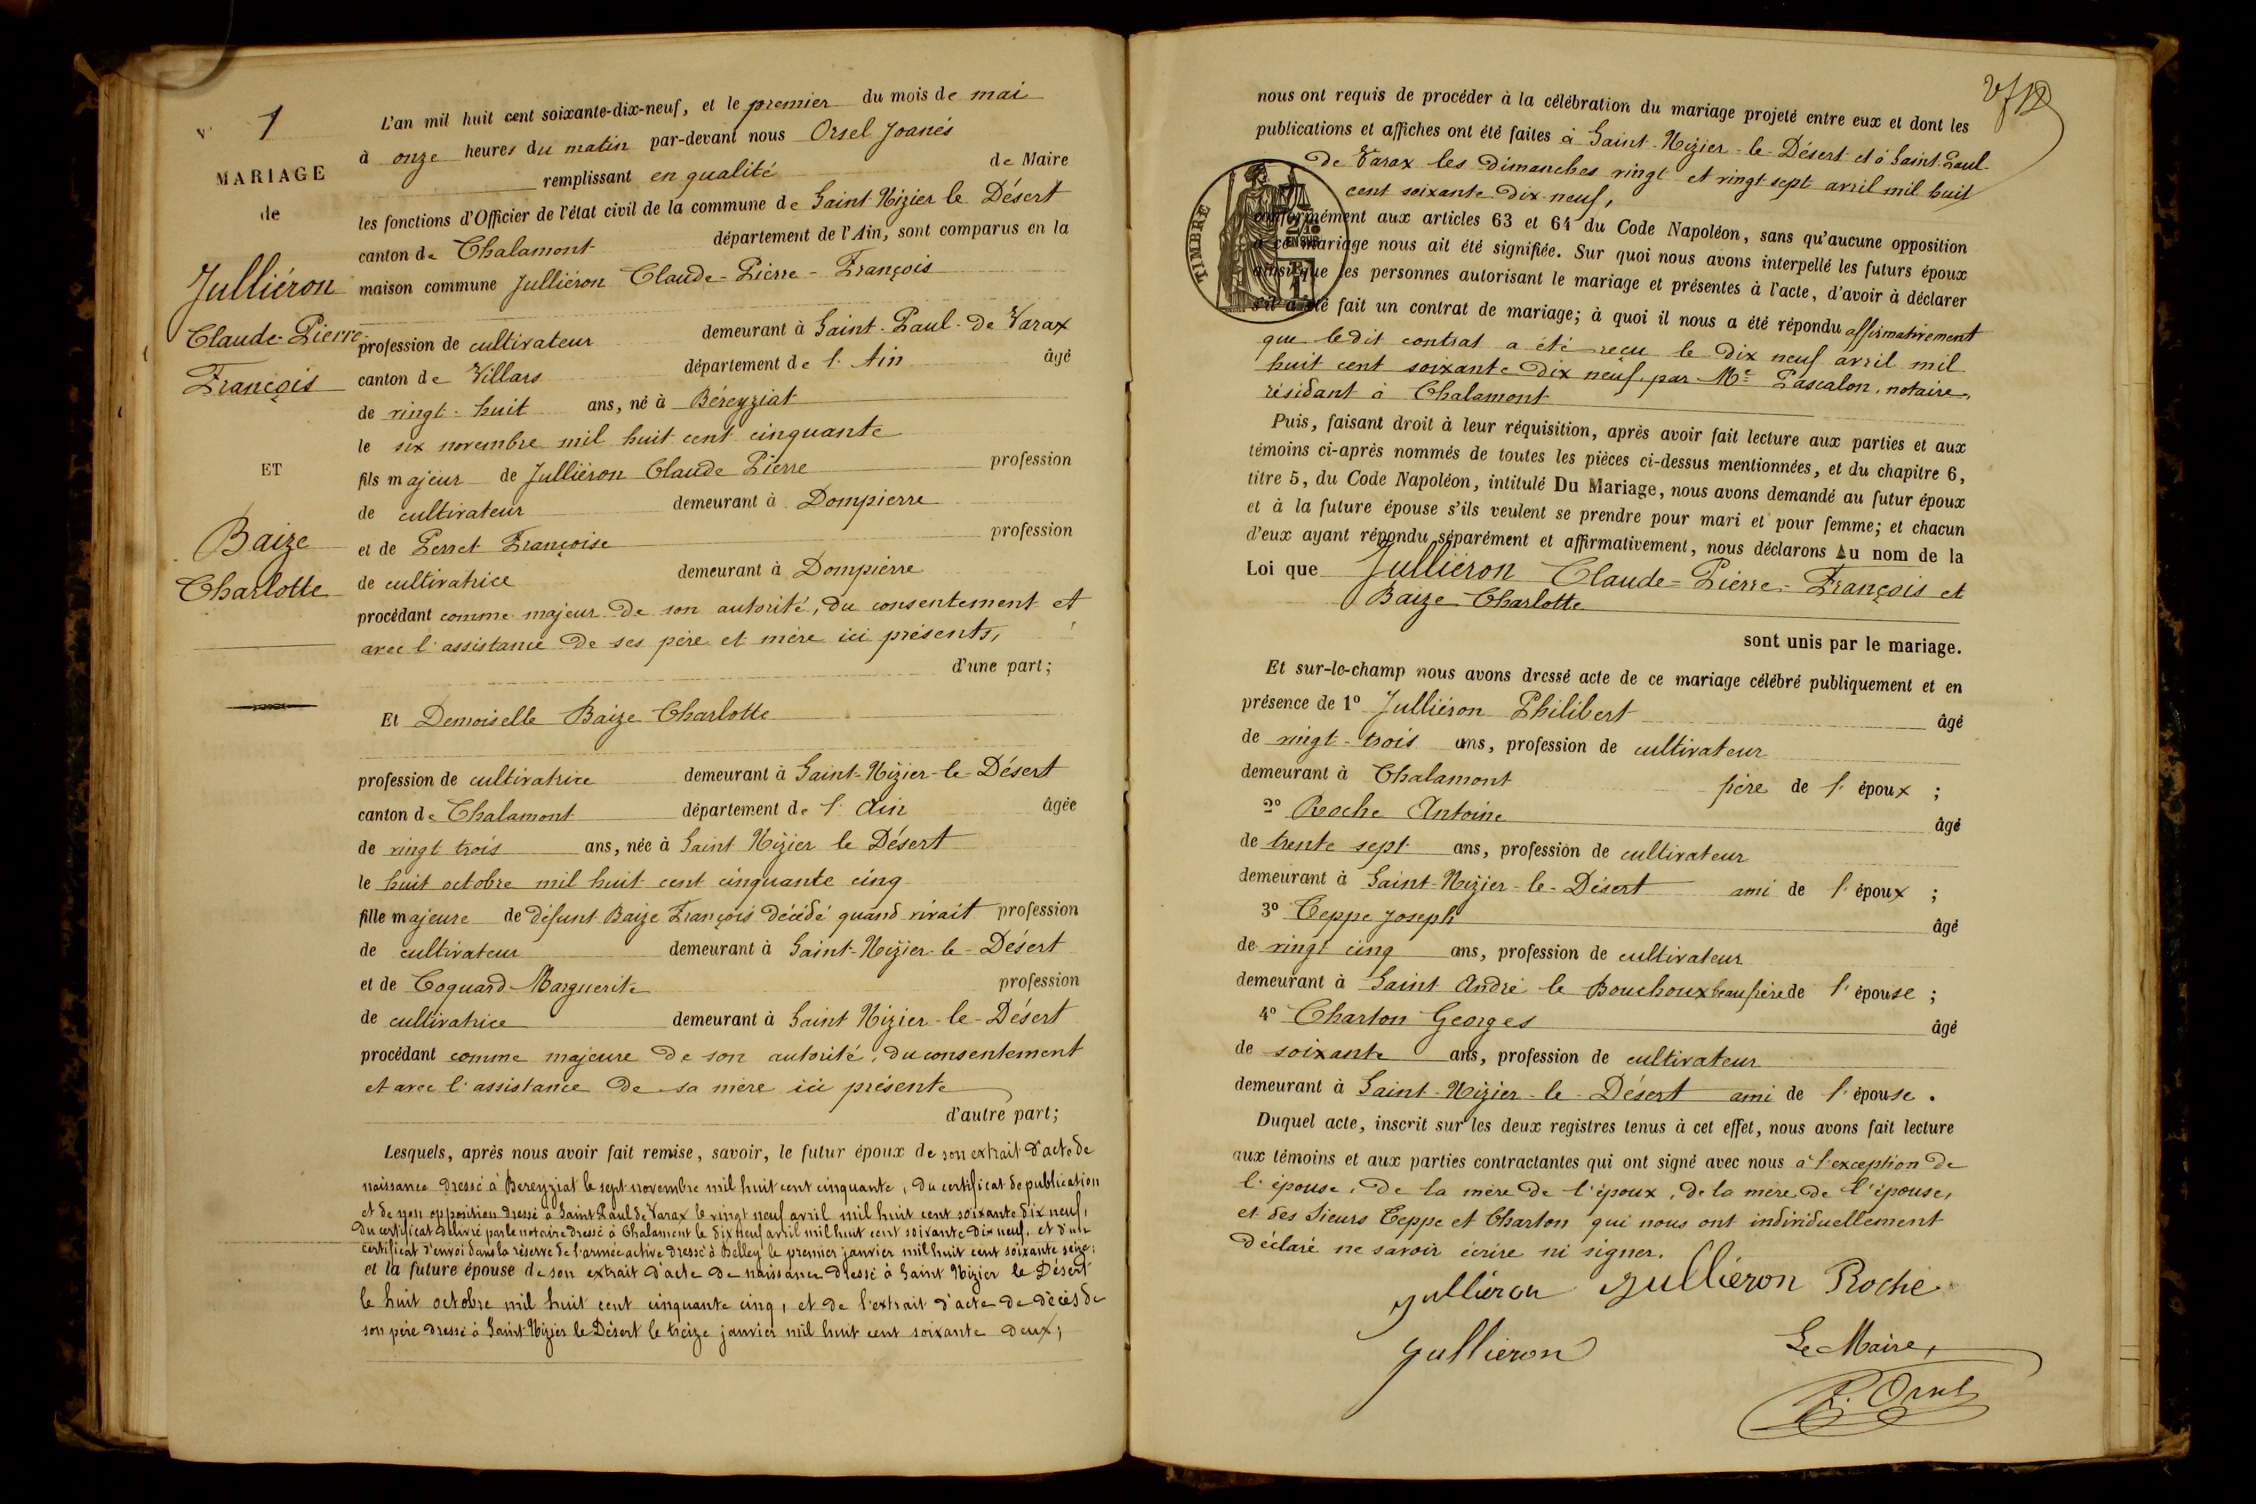 N° 1
MARIAGE
de
Julliéron
Claude-Pierre
François
ET
Baize
Charlotte
L'an mil huit cent soixante-dix-neuf, et le premier du mois de mai
à onze heures du matin par-devant nous Orsel Joanès
remplissant en qualité de Maire
les fonctions d'Officier de l'état civil de la commune de Saint Nizier le Désert
canton de Chalamont département de l'Ain, sont comparus en la
maison commune Julliéron Claude-Pierre-François
profession de cultivateur demeurant à Saint-Paul-de Varax
canton de Villars département de l'Ain âgé
de vingt-huit ans, né à Béreyziat
le six novembre mil huit cent cinquante
fils majeur de Julliéron Claude Pierre profession
de cultivateur demeurant à Dompierre
et de Perret Françoise profession
de cultivatrice demeurant à Dompierre
procédant comme majeur de son autorité, du consentement et
avec l'assistance de ses père et mère ici présents,
d'une part;
Et Demoiselle Baize Charlotte
profession de cultivatrice demeurant à Saint-Nizier-le-Désert
canton de Chalamont département de l'Ain âgée
de vingt trois ans, née à Saint Nizier le Désert
le huit octobre mil huit cent cinquante cinq
fille majeure de défunt Baize François décédé quand vivait profession
de cultivateur demeurant à Saint-Nizier-le-Désert
et de Coquard Marguerite profession
de cultivatrice demeurant à Saint Nizier-le-Désert
procédant comme majeure de son autorité, du consentement
et avec l'assistance de sa mère ici présente
d'autre part;
Lesquels, après nous avoir fait remise, savoir, le futur époux de son extrait d'acte de
naissance dressé à Bereyziat le sept novembre mil huit cent cinquante, du certificat de publication
et de non opposition dressé à Saint Paul de Varax le vingt neuf avril mil huit cent soixante dix neuf,
du certificat délivré par le notaire dressé à Chalamont le dix neuf avril mil huit cent soixante dix neuf, et d'un
certificat d'envoi dans la réserve de l'armée active dressé à Belley le premier janvier mil huit cent soixante seize;
et la future épouse de son extrait d'acte de naissance dressé à Saint Nizier le Désert
le huit octobre mil huit cent cinquante cinq, et de l'extrait d'acte de décès de
son père dressé à Saint-Nizier le Désert le treize janvier mil huit cent soixante deux;
nous ont requis de procéder à la célébration du mariage projeté entre eux et dont les
publications et affiches ont été faites à Saint-Nizier-le-Désert et à Saint-Paul
de Varax les dimanches vingt et vingt sept avril mil huit
cent soixante dix-neuf,
TIMBRE
conformément aux articles 63 et 64 du Code Napoléon, sans qu'aucune opposition
à ce mariage nous ait été signifiée. Sur quoi nous avons interpellé les futurs époux
ainsi que les personnes autorisant le mariage et présentes à l'acte, d'avoir à déclarer
s'il a été fait un contrat de mariage; à quoi il nous a été répondu affirmativement
que ledit contrat a été reçu le dix neuf avril mil
huit cent soixante dix neuf, par Me Pascalon, notaire,
résidant à Chalamont
Puis, faisant droit à leur réquisition, après avoir fait lecture aux parties et aux
témoins ci-après nommés de toutes les pièces ci-dessus mentionnées, et du chapitre 6,
titre 5, du Code Napoléon, intitulé Du Mariage, nous avons demandé au futur époux
et à la future épouse s'ils veulent se prendre pour mari et pour femme; et chacun
d'eux ayant répondu séparément et affirmativement, nous déclarons Au nom de la
Loi que Julliéron Claude-Pierre-François et
Baize Charlotte
sont unis par le mariage.
Et sur-le-champ nous avons dressé acte de ce mariage célébré publiquement et en
présence de 1° Julliéron Philibert âgé
de vingt-trois ans, profession de cultivateur
demeurant à Chalamont frère de l'époux;
2° Roche Antoine âgé
de trente sept ans, profession de cultivateur
demeurant à Saint-Nizier-le-Désert ami de l'époux;
3° Ceppe Joseph âgé
de vingt cinq ans, profession de cultivateur
demeurant à Saint André le Bouchoux beau frère de l'épouse;
4° Charton Georges âgé
de soixante ans, profession de cultivateur
demeurant à Saint-Nizier-le-Désert ami de l'épouse.
Duquel acte, inscrit sur les deux registres tenus à cet effet, nous avons fait lecture
aux témoins et aux parties contractantes qui ont signé avec nous à l'exception de
l'épouse, de la mère de l'époux, de la mère de l'épouse,
et des sieurs Ceppe et Charton qui nous ont individuellement
déclaré ne savoir écrire ni signer.
Julliéron Julliéron Roche
Julliéron Le Maire,
J. Orsel